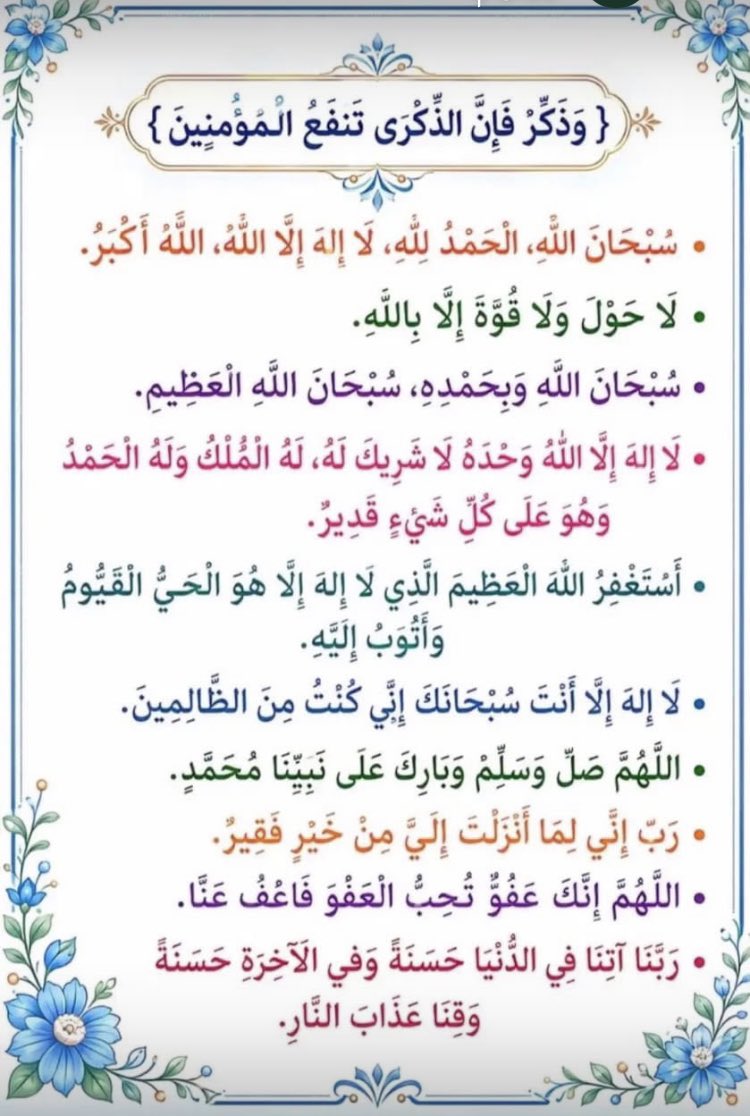 { وَذَكِّرْ فَإِنَّ الذِّكْرَى تَنفَعُ الْمُؤْمِنِينَ }
• سُبْحَانَ اللَّهِ، الْحَمْدُ لِلَّهِ، لَا إِلهَ إِلَّا اللَّهُ، اللَّهُ أَكْبَرُ.
• لَا حَوْلَ وَلَا قُوَّةَ إِلَّا بِاللَّهِ.
• سُبْحَانَ اللَّهِ وَبِحَمْدِهِ، سُبْحَانَ اللَّهِ الْعَظِيمِ.
• لَا إِلهَ إِلَّا اللَّهُ وَحْدَهُ لَا شَرِيكَ لَهُ، لَهُ الْمُلْكُ وَلَهُ الْحَمْدُ
وَهُوَ عَلَى كُلِّ شَيْءٍ قَدِيرٌ.
• أَسْتَغْفِرُ اللَّهَ الْعَظِيمَ الَّذِي لَا إِلهَ إِلَّا هُوَ الْحَيُّ الْقَيُّومُ
وَأَتُوَبُ إِلَيَّهِ.
• لَا إِلهَ إِلَّا أَنْتَ سُبْحَانَكَ إِنِّي كُنْتُ مِنَ الظَّالِمِينَ.
• اللَّهُمَّ صَلِّ وَسَلِّمْ وَبَارِكَ عَلَى نَبِيِّنَا مُحَمَّدٍ.
• رَبِّ إِنَّي لِمَا أَنْزَلْتَ إِلَيَّ مِنْ خَيْرٍ فَقِيرٌ.
• اللَّهُمَّ إِنَّكَ عَفُوٌّ تُحِبُّ الْعَفْوَ فَاعْفُ عَنَّا.
• رَبَّنَا آتِنَا فِي الدُّنْيَا حَسَنَةً وَفي الَآخِرَةِ حَسَنَةً
وَقِنَا عَذَابَ النَّارِ.